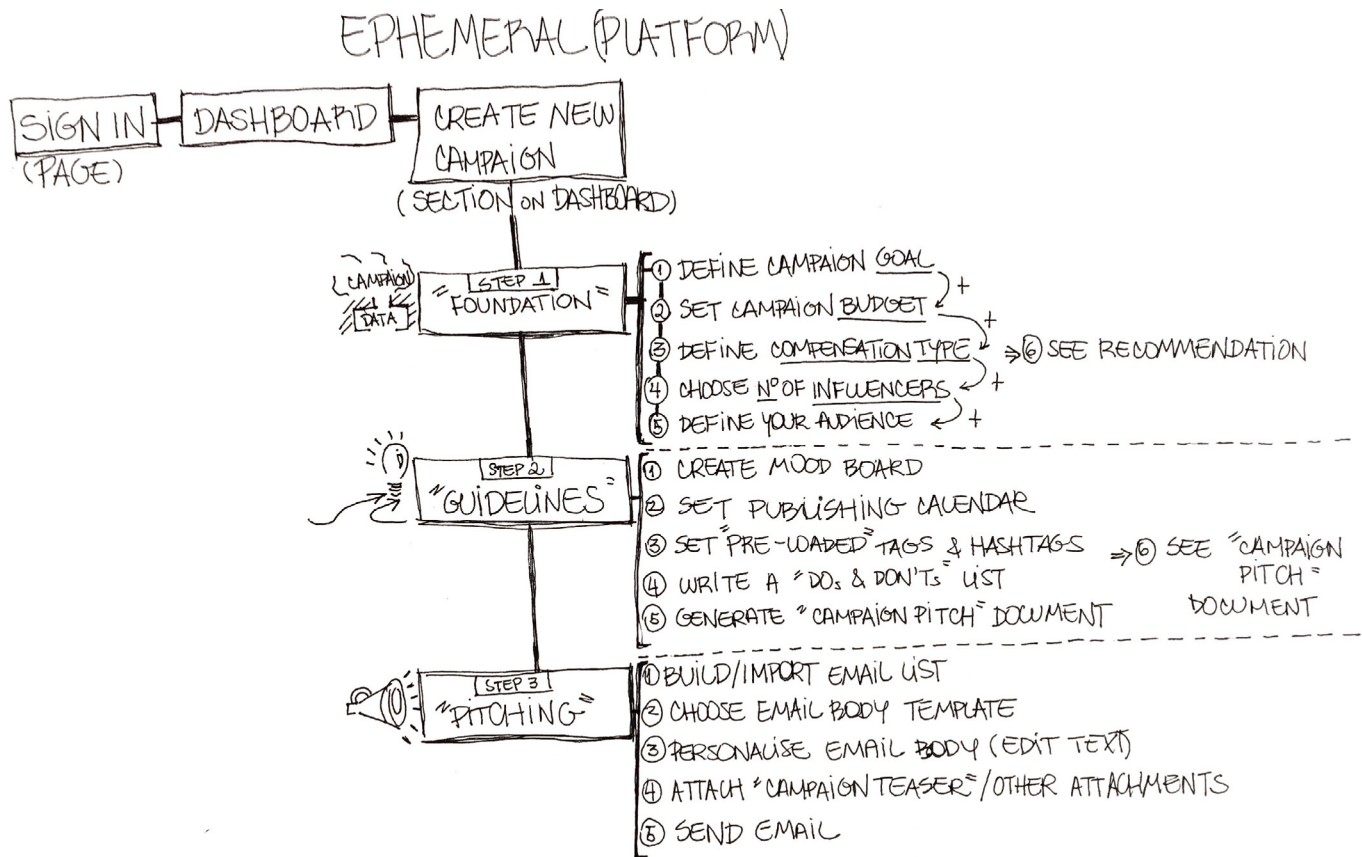 EPHEMERAL (PLATFORM)
SIGN IN
(PAGE)
DASHBOARD
CREATE NEW
CAMPAIGN
(SECTION ON DASHBOARD)
CAMPAIGN
DATA
STEP 1
"FOUNDATION"
① DEFINE CAMPAIGN GOAL
+
② SET CAMPAIGN BUDGET
+
③ DEFINE COMPENSATION TYPE
⇒ ⑥ SEE RECOMMENDATION
④ CHOOSE Nº OF INFLUENCERS
+
⑤ DEFINE YOUR AUDIENCE
+
STEP 2
"GUIDELINES"
① CREATE MOOD BOARD
② SET PUBLISHING CALENDAR
③ SET "PRE-LOADED" TAGS & HASHTAGS
④ WRITE A "DOs & DON'Ts" LIST
⑤ GENERATE "CAMPAIGN PITCH" DOCUMENT
⇒ ⑥ SEE "CAMPAIGN
PITCH"
DOCUMENT
STEP 3
"PITCHING"
① BUILD/IMPORT EMAIL LIST
② CHOOSE EMAIL BODY TEMPLATE
③ PERSONALISE EMAIL BODY (EDIT TEXT)
④ ATTACH "CAMPAIGN TEASER"/OTHER ATTACHMENTS
⑤ SEND EMAIL